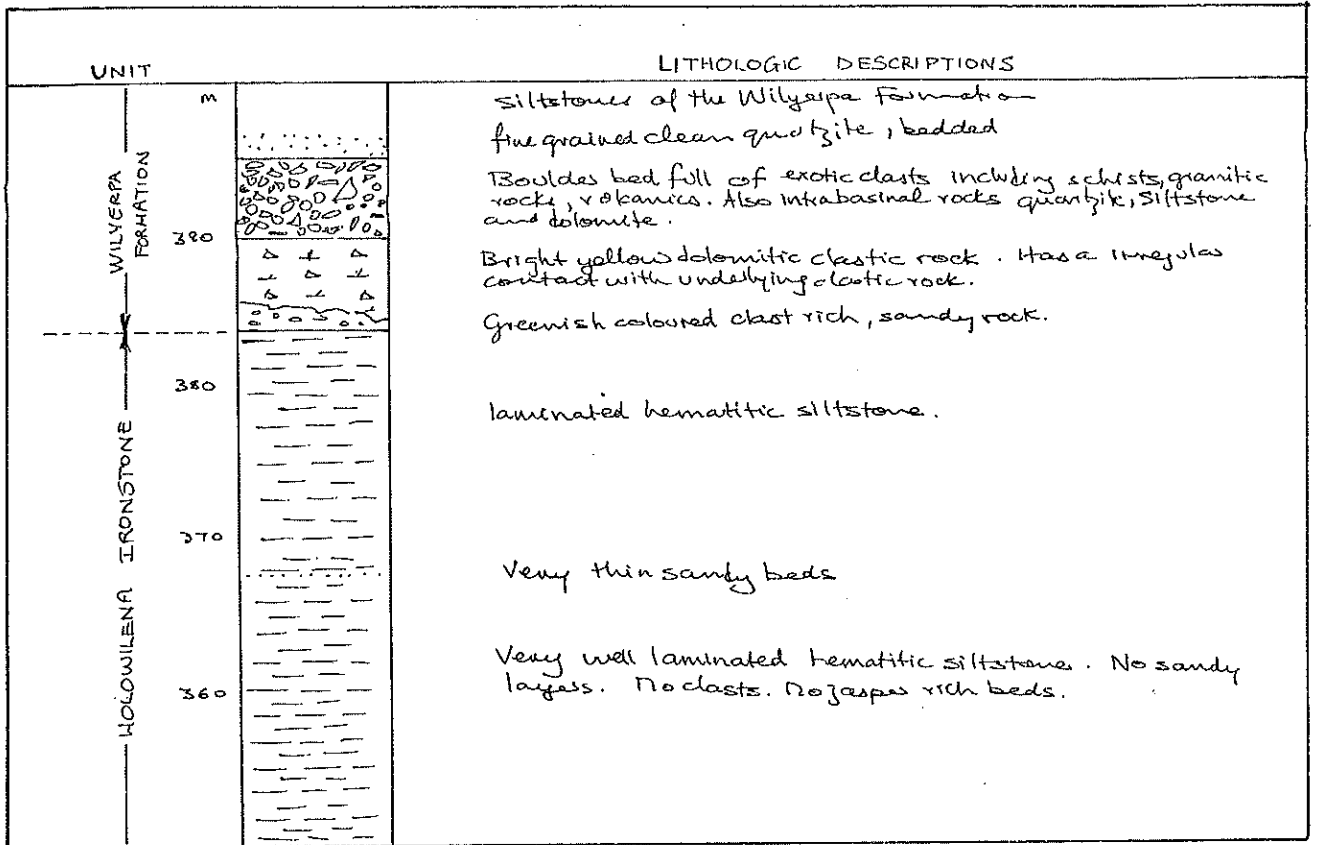 UNIT
LITHOLOGIC DESCRIPTIONS
m
siltstones of the Wilyerpa Formation
fine grained clean quartzite, bedded
WILYERPA FORMATION
Boulder bed full of exotic clasts including schists, granitic
rocks, volcanics. Also intrabasinal rocks quartzite, siltstone
and dolomite.
390
Bright yellow dolomitic clastic rock. Has a irregular
contact with underlying clastic rock.
Greenish coloured clast rich, sandy rock.
380
laminated hematitic siltstone.
HOLOWILENA IRONSTONE
370
Very thin sandy beds
Very well laminated hematitic siltstone. No sandy
layers. No clasts. No jasper rich beds.
360